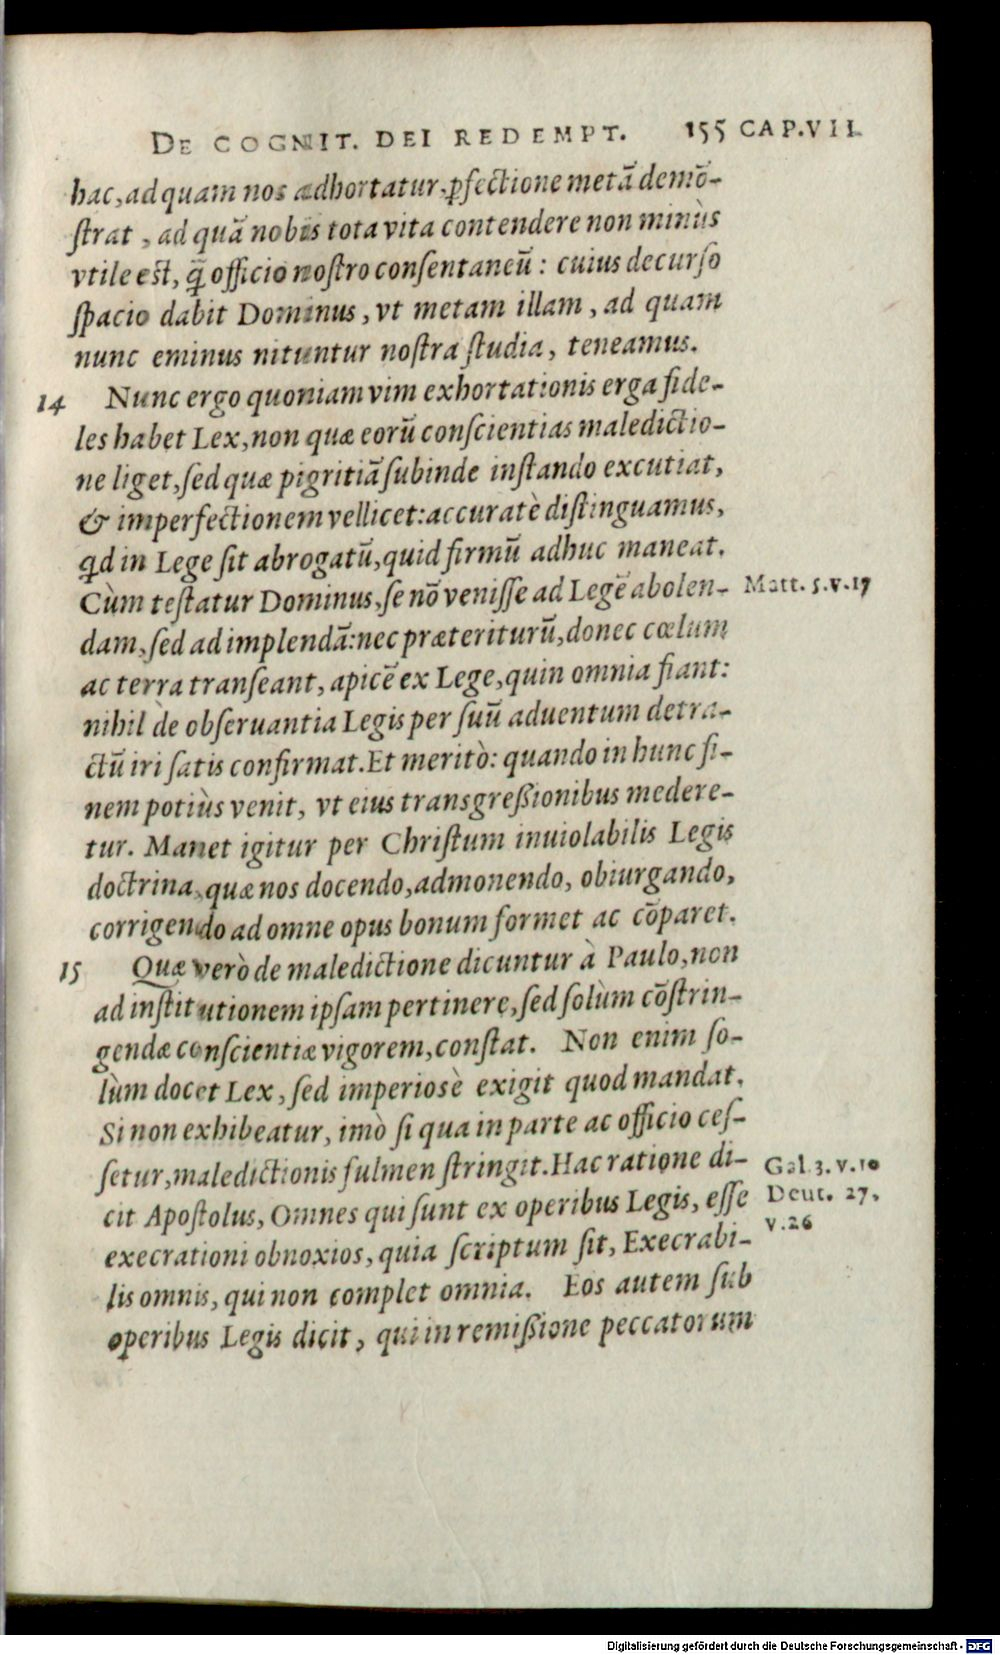 DE COGNIT. DEI REDEMPT. 155 CAP.VII.
hac, ad quam nos adhortatur, ꝑfectione metā demō-
ſtrat, ad quā nobis tota vita contendere non minùs
vtile est, q̄ officio noſtro conſentaneū: cuius decurſo
ſpacio dabit Dominus, vt metam illam, ad quam
nunc eminus nituntur noſtra ſtudia, teneamus.
14 Nunc ergo quoniam vim exhortationis erga fide-
les habet Lex, non quæ eorū conſcientias maledictio-
ne liget, ſed quæ pigritiā ſubinde inſtando excutiat,
& imperfectionem vellicet: accuratè diſtinguamus,
qd in Lege ſit abrogatū, quid firmū adhuc maneat.
Cùm teſtatur Dominus, ſe nō veniſſe ad Legē abolen-
Matt. 5.v.17
dam, ſed ad implendā: nec præteriturū, donec cœlum
ac terra tranſeant, apicē ex Lege, quin omnia fiant:
nihil de obſeruantia Legis per ſuū aduentum detra-
ctū iri ſatis confirmat. Et meritò: quando in hunc fi-
nem potiùs venit, vt eius transgreßionibus medere-
tur. Manet igitur per Chriſtum inuiolabilis Legis
doctrina, quæ nos docendo, admonendo, obiurgando,
corrigendo ad omne opus bonum formet ac cōparet.
15 Quæ verò de maledictione dicuntur à Paulo, non
ad inſtitutionem ipſam pertinere, ſed ſolùm cōſtrin-
gendæ conſcientiæ vigorem, conſtat. Non enim ſo-
lùm docet Lex, ſed imperiosè exigit quod mandat.
Si non exhibeatur, imò ſi qua in parte ac officio ceſ-
ſetur, maledictionis fulmen ſtringit. Hac ratione di-
Gal 3.v.10
cit Apoſtolus, Omnes qui ſunt ex operibus Legis, eſſe
Deut. 27.
v.26
execrationi obnoxios, quia ſcriptum ſit, Execrabi-
lis omnis, qui non complet omnia. Eos autem ſub
operibus Legis dicit, qui in remißione peccatorum
Digitalisierung gefördert durch die Deutsche Forschungsgemeinschaft - DFG